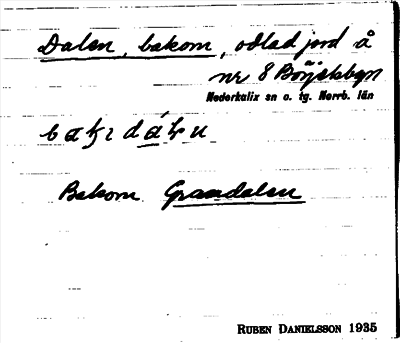 Dalen, bakom, odlad jord å
nr 8 Börjelsbyn
Nederkalix sn o. tg. Norrb. län
Bakom Grandalen
RUBEN DANIELSSON 1935